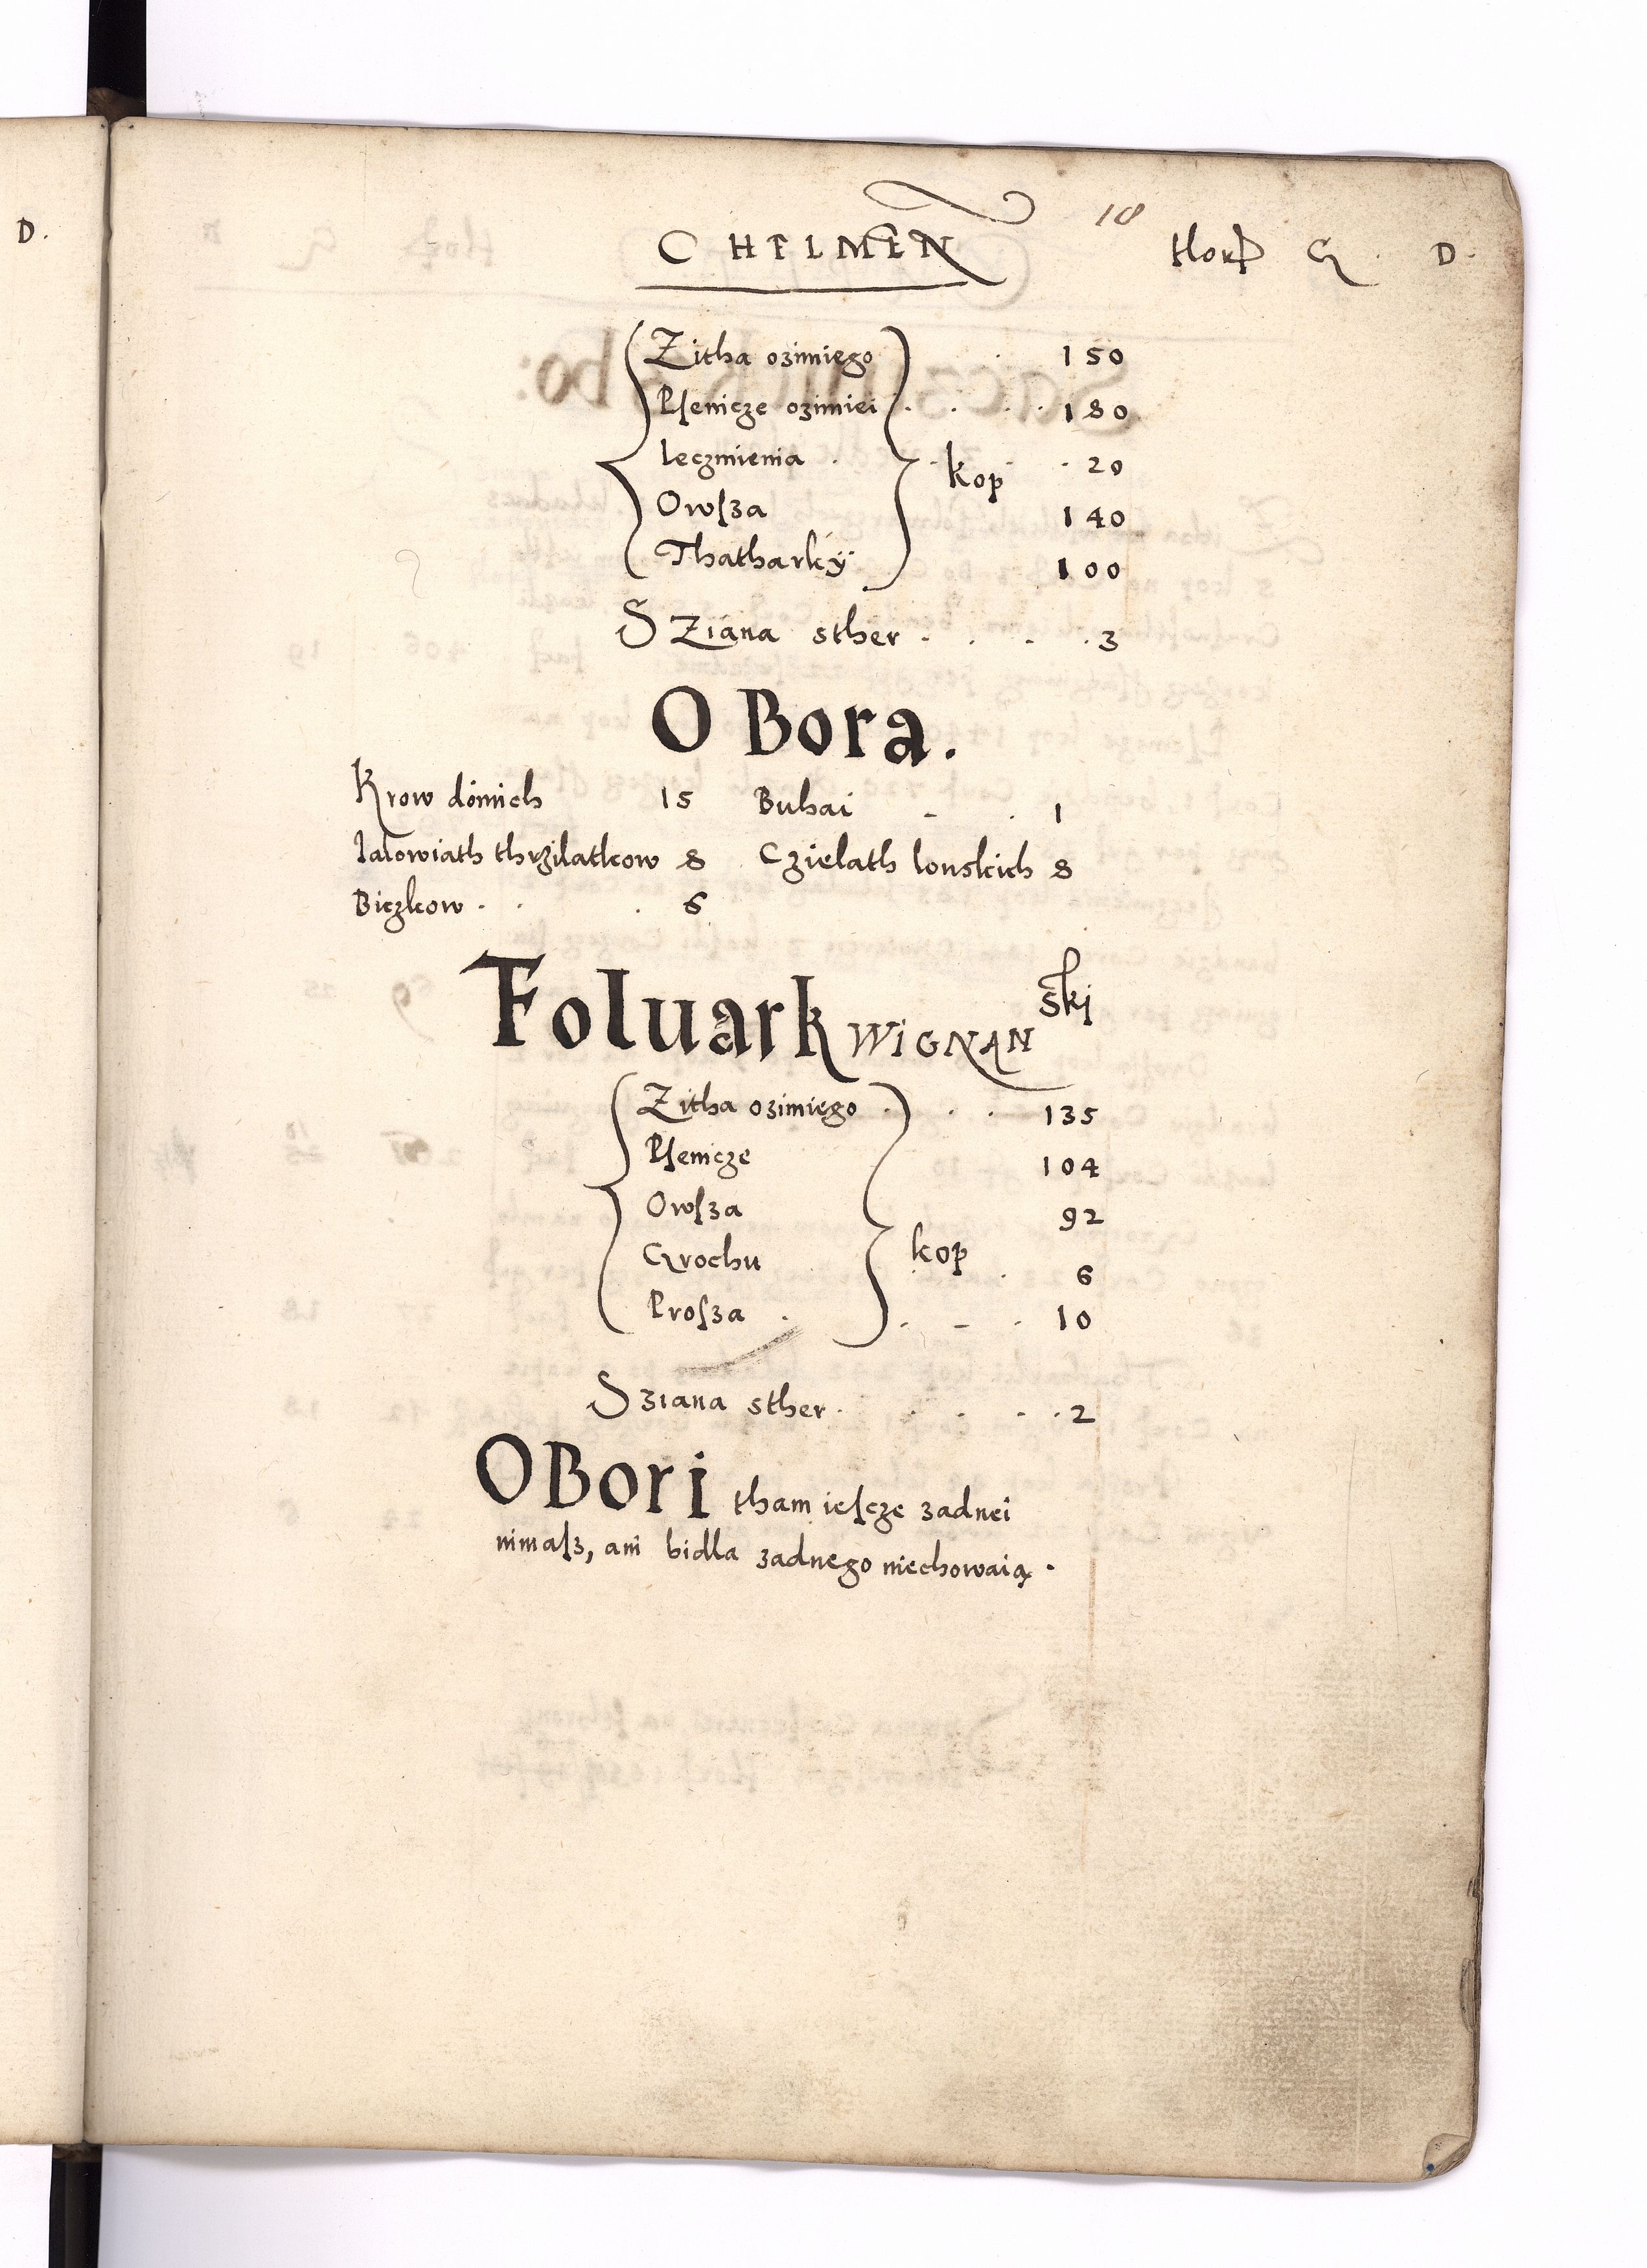 D.
18
CHELMEN Flor G D.
Zitha ozimiego 150
Pſenicze ozimiei 180
Ieczmienia kop 20
Owſza 140
Thatharkÿ 100
SZiana sther 3
OBora.
Krow doinich 15 Buhai 1
Ialowiath thrzilatkow 8 Czielath lonskich 8
Biczkow 6
Foluark WIGNANski
Zitha ozimiego 135
Pſenicze 104
Owſza 92
Grochu kop 6
Proſza 10
Sziana sther 2
OBori tham ieſcze zadnei
nimaſz, ani bidla zadnego niechowaią.